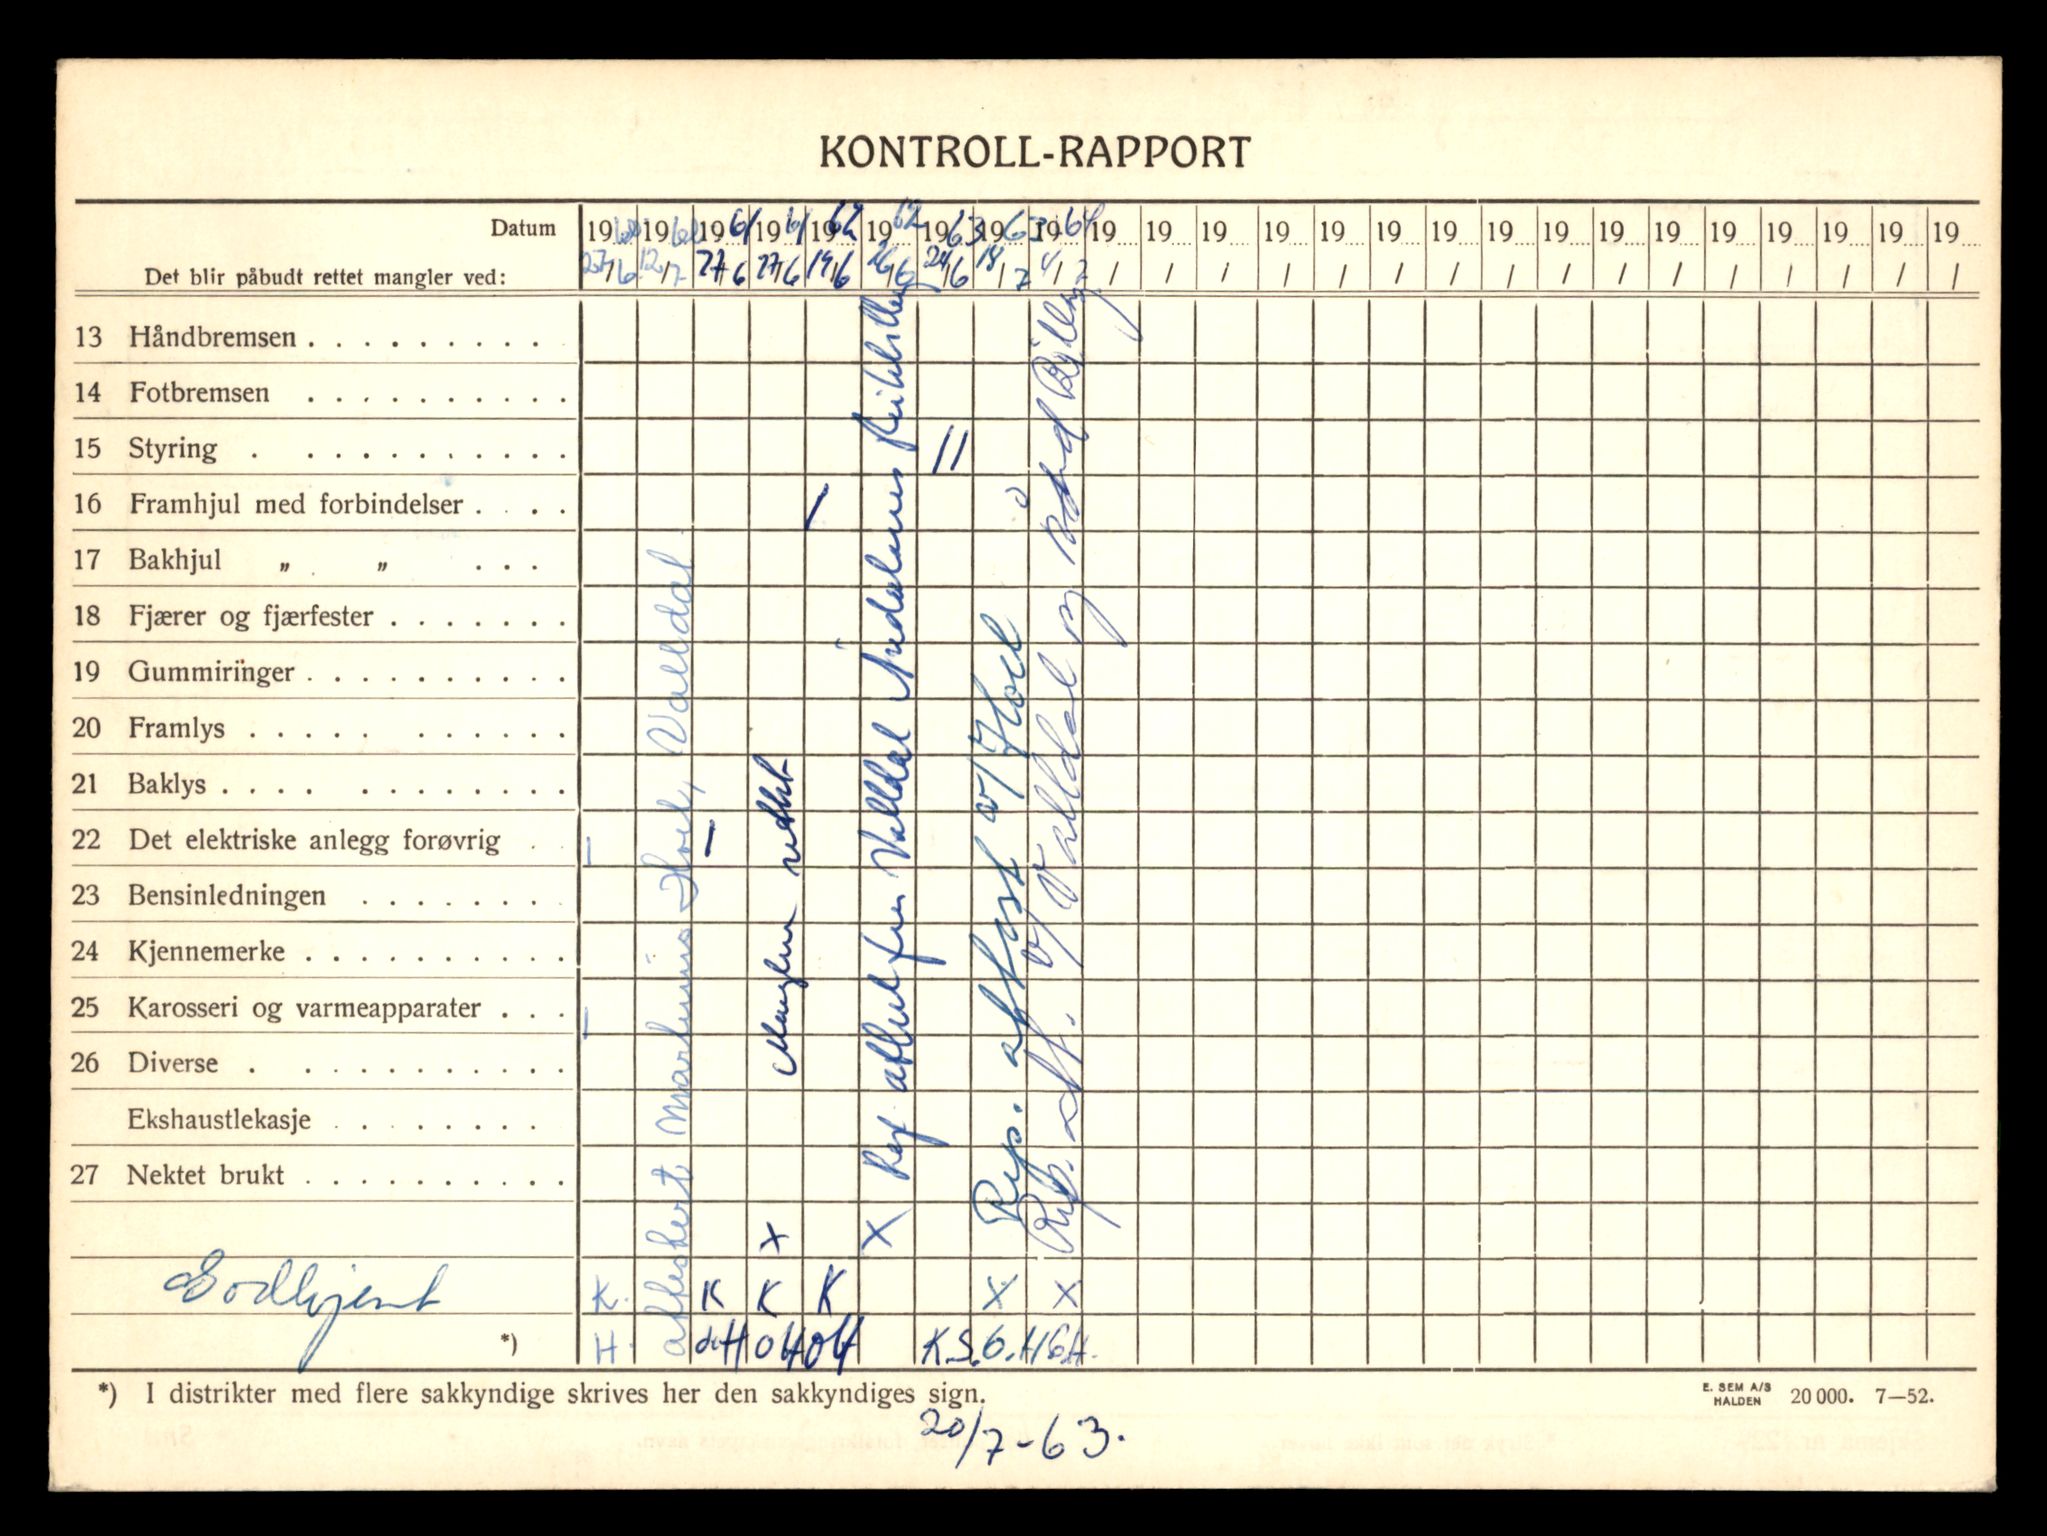 KONTROLL-RAPPORT
Datum 1960 1960 1961 1961 1962 1962 1963 1963 1964 19 19 19 19 19 19 19 19 19 19 19 19 19 19 19 19
Det blir påbudt rettet mangler ved: 27/6 12/7 27/6 27/6 19/6 26/6 24/6 18/7 4/7 / / / / / / / / / / / / / / / /
13 Håndbremsen
14 Fotbremsen
15 Styring //
16 Framhjul med forbindelser /
17 Bakhjul „ „
18 Fjærer og fjærfester
19 Gummiringer
20 Framlys
21 Baklys
22 Det elektriske anlegg forøvrig I I
23 Bensinledningen
24 Kjennemerke
25 Karosseri og varmeapparater I
26 Diverse
Ekshaustlekasje
27 Nektet brukt
X X
Godkjent K. K K K X X
*) H. OH OH OH K.S. O.H O.H.
attestert Martinus Hoel, Valldal
Mangler rettet
Rep attest fra Valldal
Rep. attest v/ Hoel
Rep. att. v/ Valldal
*) I distrikter med flere sakkyndige skrives her den sakkyndiges sign.
E. SEM A/S
HALDEN 20 000. 7—52.
20/7-63.